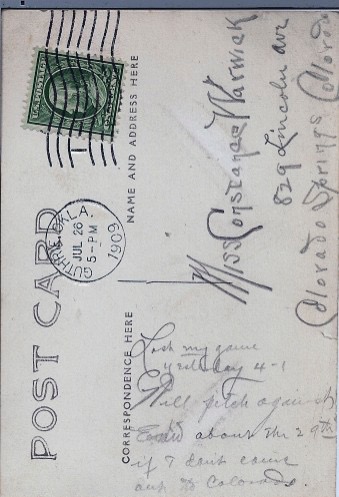 POST CARD
U.S. POSTAGE
GUTHRIE, OKLA.
JUL 26
5-PM
1909
NAME AND ADDRESS HERE
CORRESPONDENCE HERE
Miss Constance Warwick
829 Lincoln ave
Colorado Springs
Colorado
Lost my game
yesterday 4-1
Will pitch against
Enid about the 29th
if I don't come
out to Colorado.